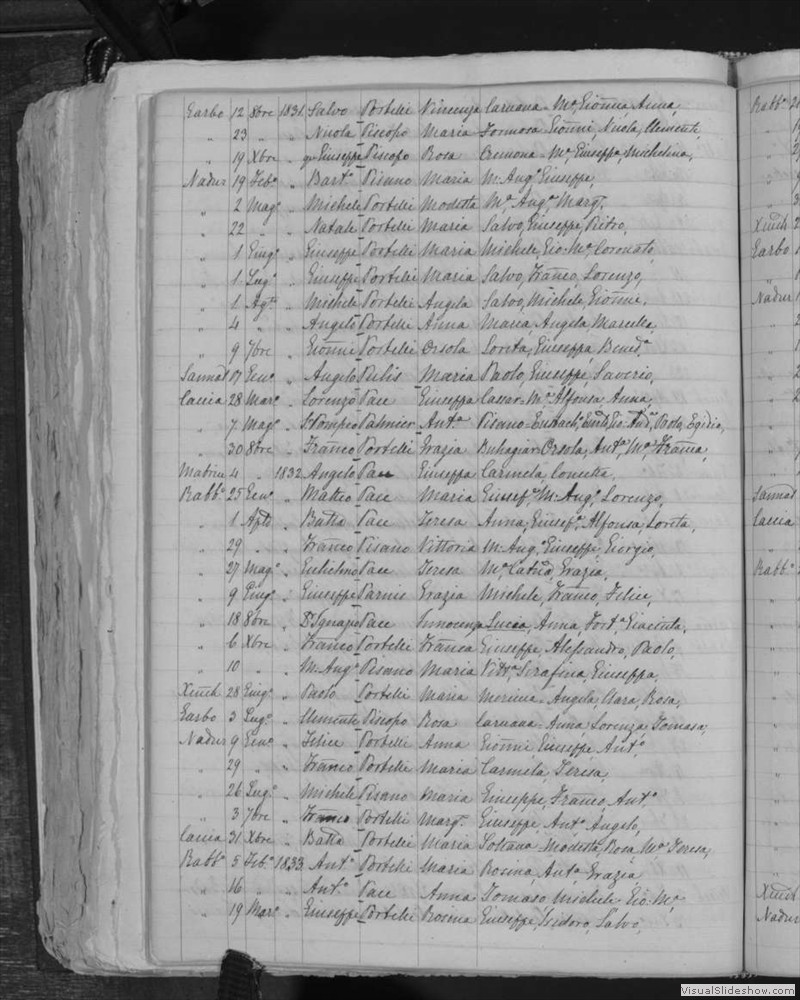 Garbo 12 8bre 1831 Salvo Portelli Vincenza Caruana Mª Gionna, Anna,
" 23 " " Nicola Piscopo Maria Formosa Gionni, Nicola, Clemente,
" 19 Xbre " qm Giuseppe Piscopo Rosa Cremona Mª Giuseppa, Michelina,
Nadur 19 Febº " Bartº Pisano Maria M: Angº Giuseppe,
" 2 Magº " Michele Portelli Modesta Mª Angª Margª,
" 22 " " Natale Portelli Maria Salvo, Giuseppe, Pietro,
" 1 Giugº " Giuseppe Portelli Maria Michele, Gio: Mª Coronato,
" 1 Lugº " Giuseppe Portelli Maria Salvo, Franco, Lorenzo,
" 1 Agto " Michele Portelli Angela Salvo, Michele, Gionni,
" 4 " " Angelo Portelli Anna Maria Angela Marcella,
" 9 7bre " Gionni Portelli Orsola Loreta, Giuseppa Benedª
Sannat 17 Genº " Angelo Pulis Maria Paolo, Giuseppe, Saverio,
Caccia 28 Marº " Lorenzo Pace Giuseppa Cassar Mª Alfonsa Anna,
" 7 Magº " St Pompeo Palmier Antª Pisano Paola, Egidia,
" 30 8bre " Franco Portelli Grazia Buhagiar Orsola, Antª, Mª Franca,
Matrice 4 " 1832 Angelo Pace Giuseppa Carmela, Concetta,
Rabbº 25 Genº " Matteo Pace Maria Giusepª, M: Angº Lorenzo,
" 1 Aple " Batta Pace Teresa Anna, Giusepª, Alfonsa, Loreta,
" 29 " " Franco Pisano Vittoria M: Angº Giuseppe, Giorgio,
" 27 Magº " Pace Teresa Mª Catnª, Grazia,
" 9 Giugº " Giuseppe Parnis Grazia Michele, Franco, Felice,
" 18 8bre " Dr Ignazio Pace Innocenza Lucia, Anna, Fortª, Giacinta,
" 6 Xbre " Franco Portelli Franca Giuseppe, Alessandro, Paolo,
" 10 " " M: Angº Pisano Maria Vittª, Serafina, Giuseppa,
Xeuch 28 Giugº " Paolo Portelli Maria Mercieca Angela, Clara, Rosa,
Garbo 3 Lugº " Clemente Piscopo Rosa Caruana Anna, Lorenza, Tomasa,
Nadur 9 Genº " Felice Portelli Anna Gionni Giuseppe, Antº,
" 29 " " Franco Portelli Maria Carmela, Teresa,
" 26 Lugº " Michele Pisano Maria Giuseppe, Franco, Antº
" 3 7bre " Franco Portelli Margª Giuseppe, Antº Angelo,
Caccia 31 Xbre " Batta Portelli Maria Soltana Modesta, Rosa, Mª Teresa,
Rabbº 5 Febº 1833 Antº Portelli Maria Rosina, Antª Grazia
" 16 " " Antº Pace Anna Tomaso Michele Gio: Mª
" 19 Marº " Giuseppe Portelli Rosina Giuseppe, Isidoro, Salvo,
Rabbº
Xeuch
Garbo
Nadur
Sannat
Caccia
Rabbº
Xeuch
Nadur
VisualSlideshow.com